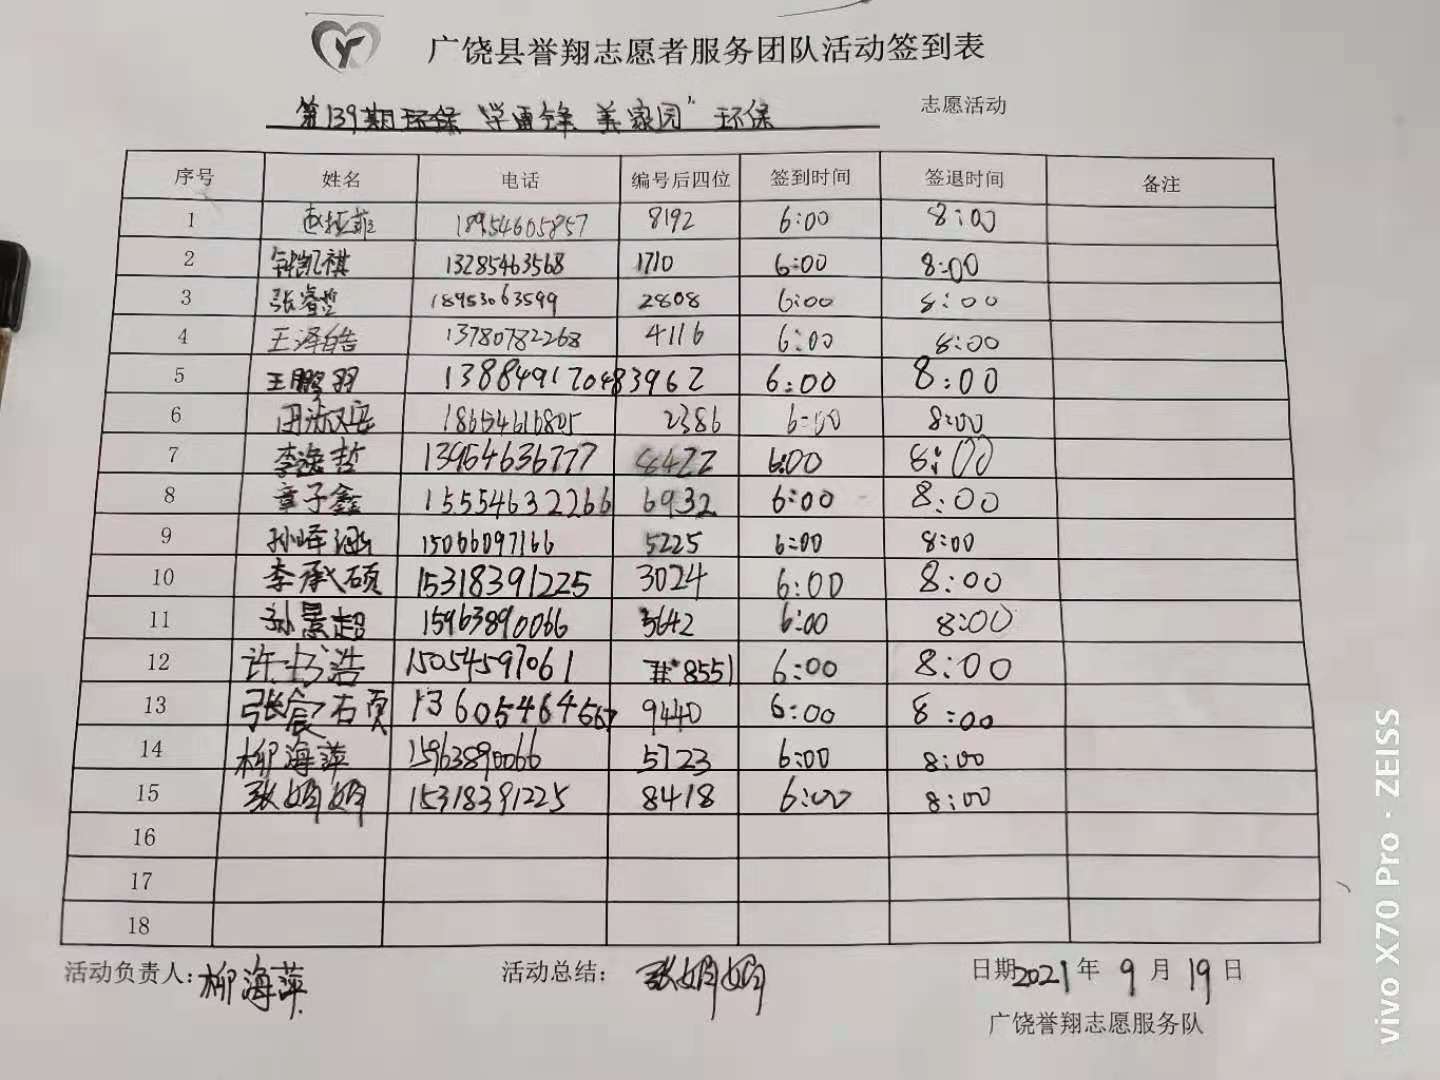 广饶县誉翔志愿者服务团队活动签到表
第139期环保“学雷锋 美家园”环保 志愿活动
序号 姓名 电话 编号后四位 签到时间 签退时间 备注
1 18954605857 8192 6:00 8:00
2 钟凯祺 13285463568 1710 6:00 8:00
3 张睿哲 18953063599 2808 6:00 8:00
4 王泽皓 13780782268 4116 6:00 8:00
5 王鹏羽 13884917048 3962 6:00 8:00
6 18654616805 2386 6:00 8:00
7 李逸哲 13954636777 8422 6:00 8:00
8 章子鑫 15554632266 6932 6:00 8:00
9 孙峄涵 15066097166 5225 6:00 8:00
10 李承硕 15318391225 3024 6:00 8:00
11 孙景超 15963890066 3642 6:00 8:00
12 许书浩 15054597061 8551 6:00 8:00
13 13605464567 9440 6:00 8:00
14 柳海萍 15963890066 5723 6:00 8:00
15 张娟娟 15318391225 8418 6:00 8:00
16
17
18
活动负责人：柳海萍 活动总结： 张娟娟 日期2021年 9 月 19 日
广饶誉翔志愿服务队
vivo X70 Pro · ZEISS